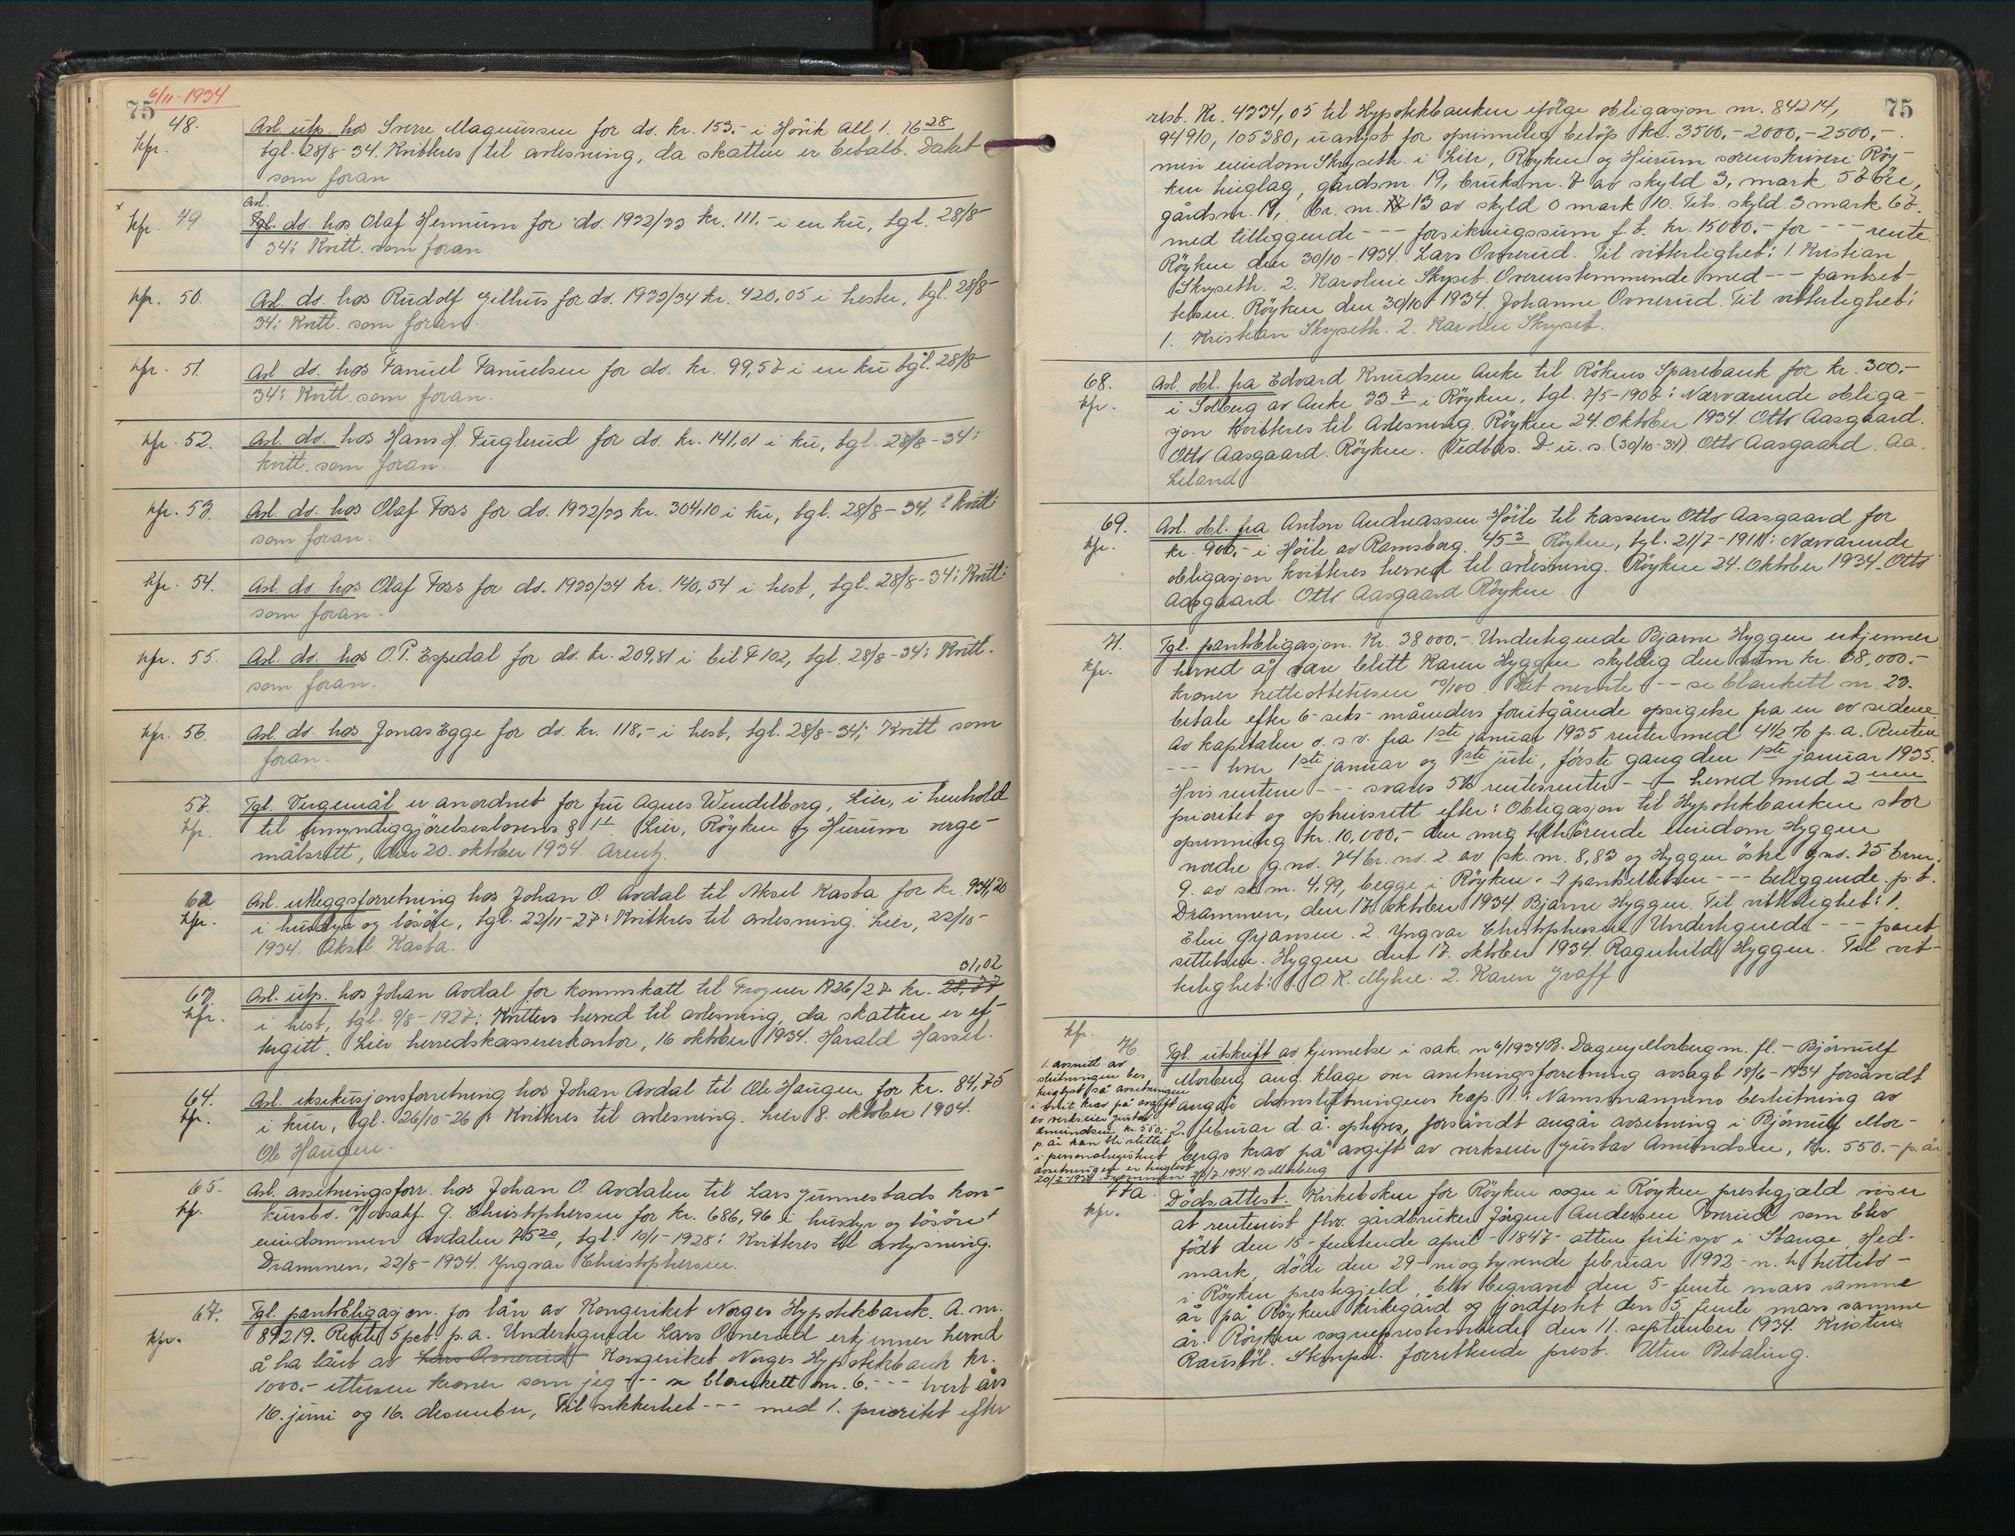 75 6/11-1934.
48. Avl. utp. hos Sverre Magnussen for do. kr. 153.- i Hörik all 1. 16 28
kfr. tgl. 28/8-34. Kvitteres til avlesning, da skatten er betalt. Datert
som foran
Avl.
kfr. 49 Tgl. do. hos Olaf Hennum for do. 1932/33 kr. 111.- i en ku, tgl. 28/8-
34: Kvitt. som foran
kfr. 50. Avl. do. hos Rudolf Gilhus for do. 1933/34 kr. 420,05 i hester, tgl. 28/8-
34: Kvitt. som foran.
kfr. 51. Avl. do. hos Fanuel Fanuelsen for do. kr. 99,57 i en ku tgl. 28/8-
34: Kvitt. som foran.
kfr. 52. Avl. do. hos Hans H. Fuglerud for do. kr. 141,01 i ku, tgl. 28/8-34:
kvitt. som foran.
kfr. 53. Avl. do. hos Olaf Foss for do. 1932/33 kr. 304,10 i ku, tgl. 28/8-34, : Kvitt:
som foran.
kfr. 54. Avl. do. hos Olaf Foss for do. 1933/34 kr. 140,54 i hest, tgl. 28/8-34: Kvitt:
som foran.
kfr. 55. Avl. do. hos O. P. Espedal for do. kr. 209,81 i bil F 102, tgl. 28/8-34: Kvitt.
som foran.
kfr. 56. Avl. do. hos Jonas Egge for do. kr. 118,- i hest, tgl. 28/8-34: Kvitt som
foran.
57. Tgl. Vergemål er anordnet for fru Agnes Wendelborg, Lier, i henhold
kfr. til Umyndiggjörelseslovens § 1. Lier, Röyken og Hurum verge-
målsrett, den 20. oktober 1934. Arentz.
62 Avl. utleggsforretning hos Johan O. Avdal til Aksel Kasba for kr. 934,20
kfr. i husdyr og lösöre, tgl. 22/11-27: Kvitteres til avlesning. Lier, 22/10-
1934. Aksel Kasba.
31,02
63 Avl. utp. hos Johan Avdal for kommskatt til Frogner 1926/27 kr. 28,77
kfr. i hest, tgl. 9/8-1927: Kvitteres herved til avlesning, da skatten er ef-
tergitt. Lier herredskassererkontor, 16 oktober 1934. Harald Hassel.
64. Avl. eksekusjonsforretning hos Johan Avdal til Ole Haugen for kr. 84,75
kfr. i kuer, tgl. 26/10-26 : Kvitteres til avlesning. Lier 8. oktober 1934.
Ole Haugen.
65. Avl. avsetningsforr. hos Johan O. Avdalen til Lars Gunnestads kon-
kf. kursbo. v/ovsakf. Y. Christophersen for kr. 686,96 i husdyr og lösöre
eiendommen Avdalen 75 20, tgl. 10/1-1928: Kvitteres til avlysning.
Drammen, 22/8-1934. Yngvar Christophersen.
67. Tgl. pantobligasjon. for lån av Kongeriket Norges Hypotekbank. A. nr.
kfr. 89219. Rente 5 pct p. a. Undertegnede Lars Ovnerud erkjenner herved
å ha lånt av Lars Ovnerud Kongeriket Norges Hypotekbank kr.
1000.- ettusen kroner som jeg --- se blankett nr. 6. --- hvert års
16. juni og 16. desember, Til sikkerhet --- med 1. prioritet efter
75
rest. Kr. 4334,05 til Hypotekbanken ifölge obligasjon nr. 84214,
94910, 105380, utlyst for oprinnelig belöp kr. 3500,-2000,-2500,-.
min eiendom Skryseth i Lier, Röyken og Hurum sorenskriveri Röy-
ken tinglag, gårdsnr. 19, bruksnr. 7 av skyld 3, mark 57 öre,
gårdsnr. 19, br. nr. 13 av skyld 0 mark 10. Tils. skyld 3 mark 67.
med tilliggende --- forsikringssum f. t. kr. 15000.- for --- rente.
Röyken den 30/10-1934. Lars Ovnerud. Til vitterlighet: 1. Kristian
Skryseth. 2. Karoline Skryset. Overensstemmende med --- pantset-
telsen. Röyken den 30/10 1934. Johanne Ovnerud. Til vitterlighet:
1. Kristian Skryseth. 2. Karoline Skryset.
68. Avl. obl. fra Edvard Knudsen Auke til Rökens Sparebank for kr. 300.-
kfr. i Solberg av Auke 33 7 i Röyken, tgl. 7/5-1906: Nærværende obliga-
sjon kvitteres til Avlesning. Röyken 24. oktober 1934. Otto Aasgaard.
Otto Aasgaard. Röyken. Vedtas. D. u. s. (30/10-34) Otto Aasgaard. Aa.
Leland
69. Avl. obl. fra Anton Andreassen Höile til kasserer Otto Aasgaard for
kfr. kr. 900,- i Höile av Ramsborg. 45 3 Röyken, tgl. 21/7-1911: Nærværende
obligasjon kvitteres herved til avlesning. Röyken 24. oktober 1934. Otto
Aasgaard. Otto Aasgaard Röyken.
71. Tgl. pantobligasjon. Kr. 38000.- Undertegnede Bjarne Hyggen erkjenner
kfr. herved å være blitt Karen Hyggen skyldig den sum kr. 38,000.-
kroner trettiottetusen 00/100. Det nevnte --- se blankett nr. 23.
betale efter 6-seks-måneders forutgående opsigelse fra en av sidene.
Av kapitalen o. s. v. fra 1ste januar 1935 renter med 4 1/2 % p. a. Renten
--- hver 1ste januar og 1ste juli, förste gang den 1ste januar 1935.
Hvis rentene --- svares 5% rentesrenter --- herved med 2nen
prioritet og optrinsrett efter: Obligasjon til Hypotekbanken stor
oprinnelig kr. 10,000,- den mig tilhörende eiendom Hyggen
nordre g. no. 74 br. no. 2 av sk. m. 8,83 og Hyggen östre g. no. 75 br. nr.
9. av sk. m. 4,99, begge i Röyken. I pantsettelsen --- beliggende. p. t.
Drammen, den 17. oktober 1934 Bjarne Hyggen. Til vitterlighet: 1.
Elin Ørjansen. 2. Yngvar Christophersen Undertegnede --- pant
settelsen. Hyggen den 17. oktober 1934 Ragnhild Hyggen. Til vit-
terlighet: 1. O. K. Myhre. 2. Karen Graff
kfr. 76. Tgl. utskrift av kjennelse i sak. nr. 6/1934 B. Dagny Morberg m. fl. - Bjørnulf
Morberg ang. klage over avsetningsforretning avsagt 18/6-1934 forsåvidt
angår domslutningens kap. 1. : Namsmannens beslutning av
2. februar d. å. opheves, forsåvidt angår avsetning i Bjørnulf Mor-
bergs krav på avgift av verkseier Gustav Amundsen, kr. 550.- p. år
1. avsnitt av
slutningen bes
tinglyst så avsetningen
i det krav på avgift
av verkseier Gustav
Amundsen kr. 550,-
p. år kan bli slettet
i personalregistret
avsetningen er tinglyst
20/2-1934. Drammen 7/7. 1934. B. Morberg
77a. Dödsattest. Kirkeboken for Röyken sogn i Röyken prestegjeld viser
kfr. at rentenist fhv. gårdbruker Jörgen Andersen Ovnerud som blev
födt den 15-femtende april-1847-atten förti syv i Stange, Hed-
mark, döde den 29-niogtyvende februar 1932-n. h. trettito-
i Röyken prestegjeld, blev begravet den 5-femte mars samme
år på Röyken kirkegård og jordfestet den 5 femte mars samme
år. Röyken sogneprestembede den 11. september 1934. Kristen
Raustöl. Stempel. forrettende prest. Uten Betaling.